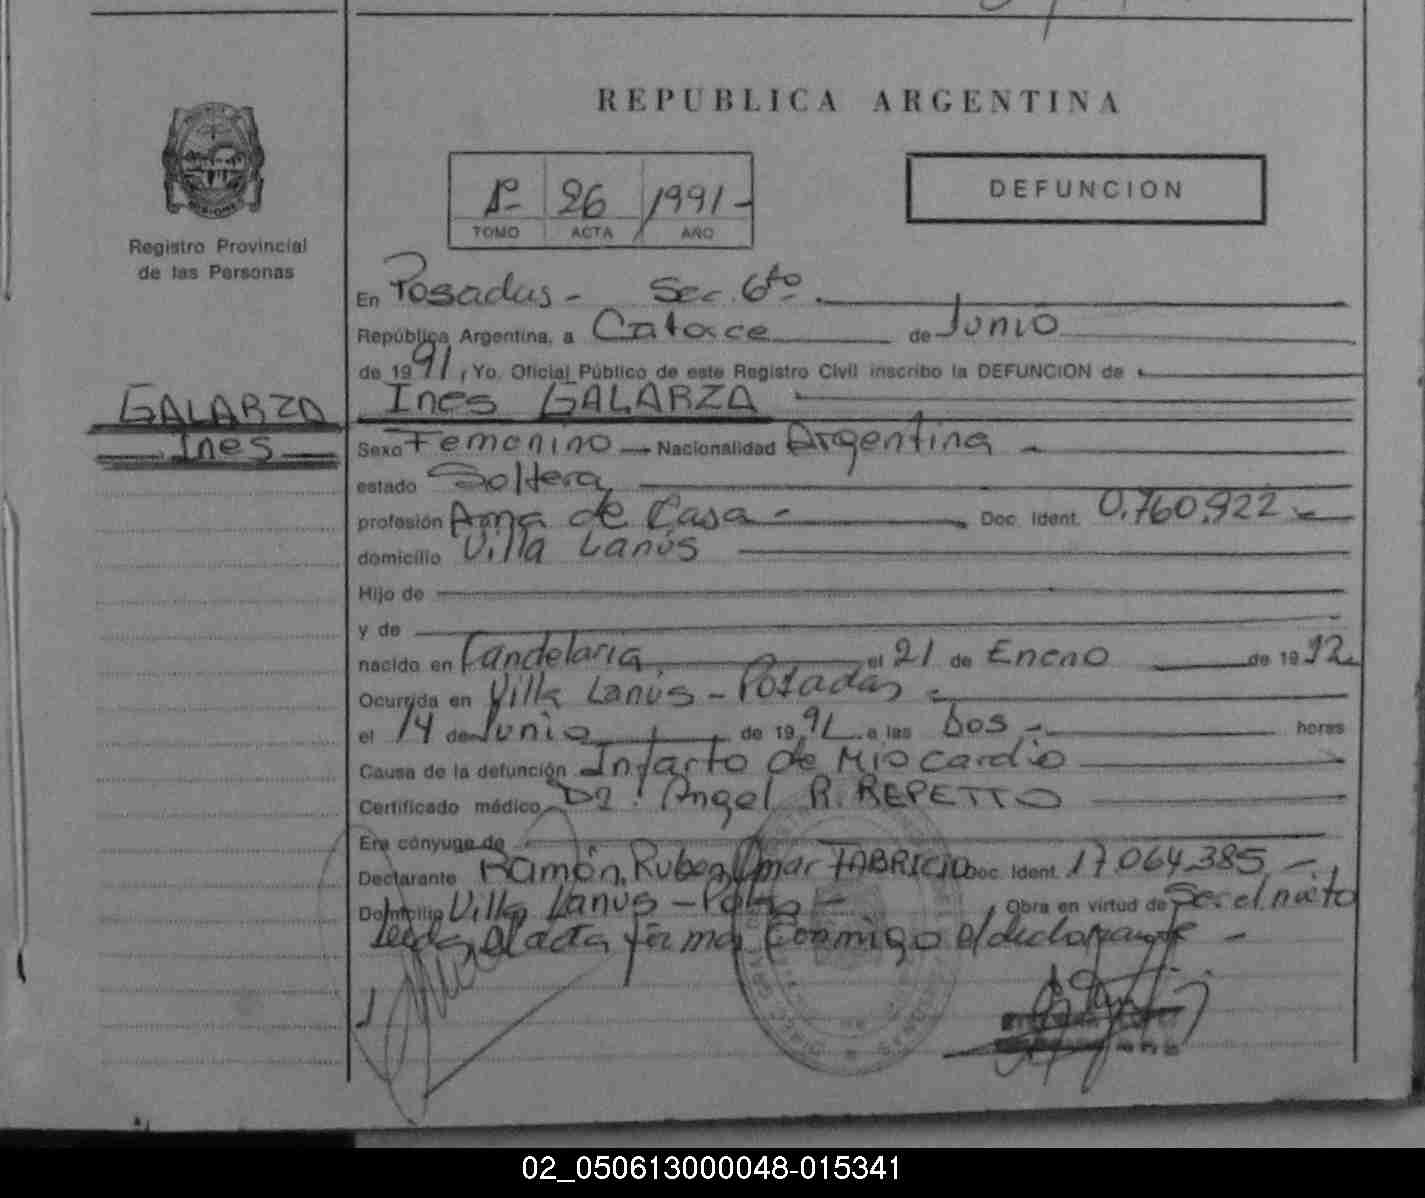 REPUBLICA ARGENTINA
1º 26 1991-
TOMO ACTA AÑO
DEFUNCION
MISIONES
Registro Provincial
de las Personas
GALARZA
Ines
En Posadas - Sec. 6to
República Argentina, a Catorce de Junio
de 1991, Yo, Oficial Público de este Registro Civil inscribo la DEFUNCION de
Ines GALARZA
Sexo Femenino - Nacionalidad Argentina
estado Soltera
profesión Ama de Casa - Doc. Ident. 0.760.922
domicilio Villa Lanús
Hijo de
y de
nacido en Candelaria el 21 de Enero de 1912
Ocurrida en Villa Lanús - Posadas
el 14 de Junio de 1991 a las Dos - horas
Causa de la defunción Infarto de Miocardio
Certificado médico Dr. Angel R. REPETTO
Era cónyuge de
Declarante Ramón, Ruben Omar FABRICIO Doc. Ident. 17.064.385 -
Domicilio Villa Lanus - Pdas - Obra en virtud de Ser el nieto
Leida el acta firma conmigo el declarante -
02_050613000048-015341